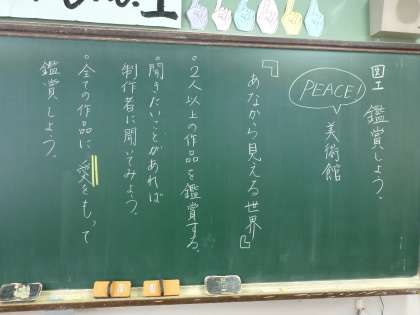 図工 鑑賞しよう。
PEACE!
美術館
『あながら見える世界』
。2人以上の作品を鑑賞する。
。聞きたいことがあれば
制作者に聞いてみよう。
。全ての作品に愛をもって
鑑賞しよう。